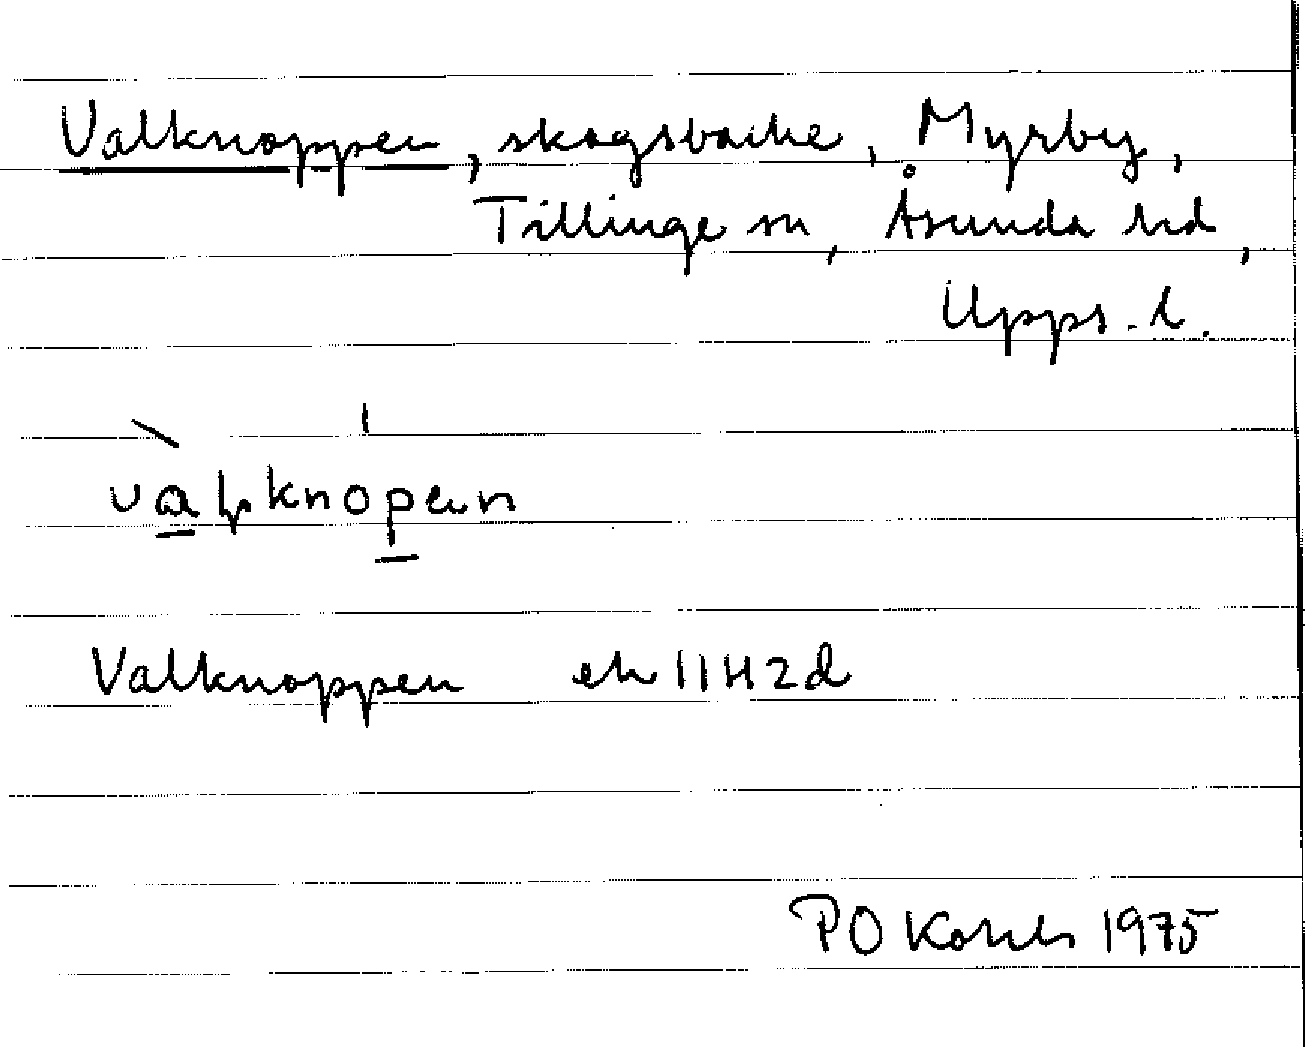 Valknoppen, skogsbacke, Myrby,
Tillinge sn, Åsunda hd,
Upps. l.
Valknoppen ek 11H2d
PO 1975